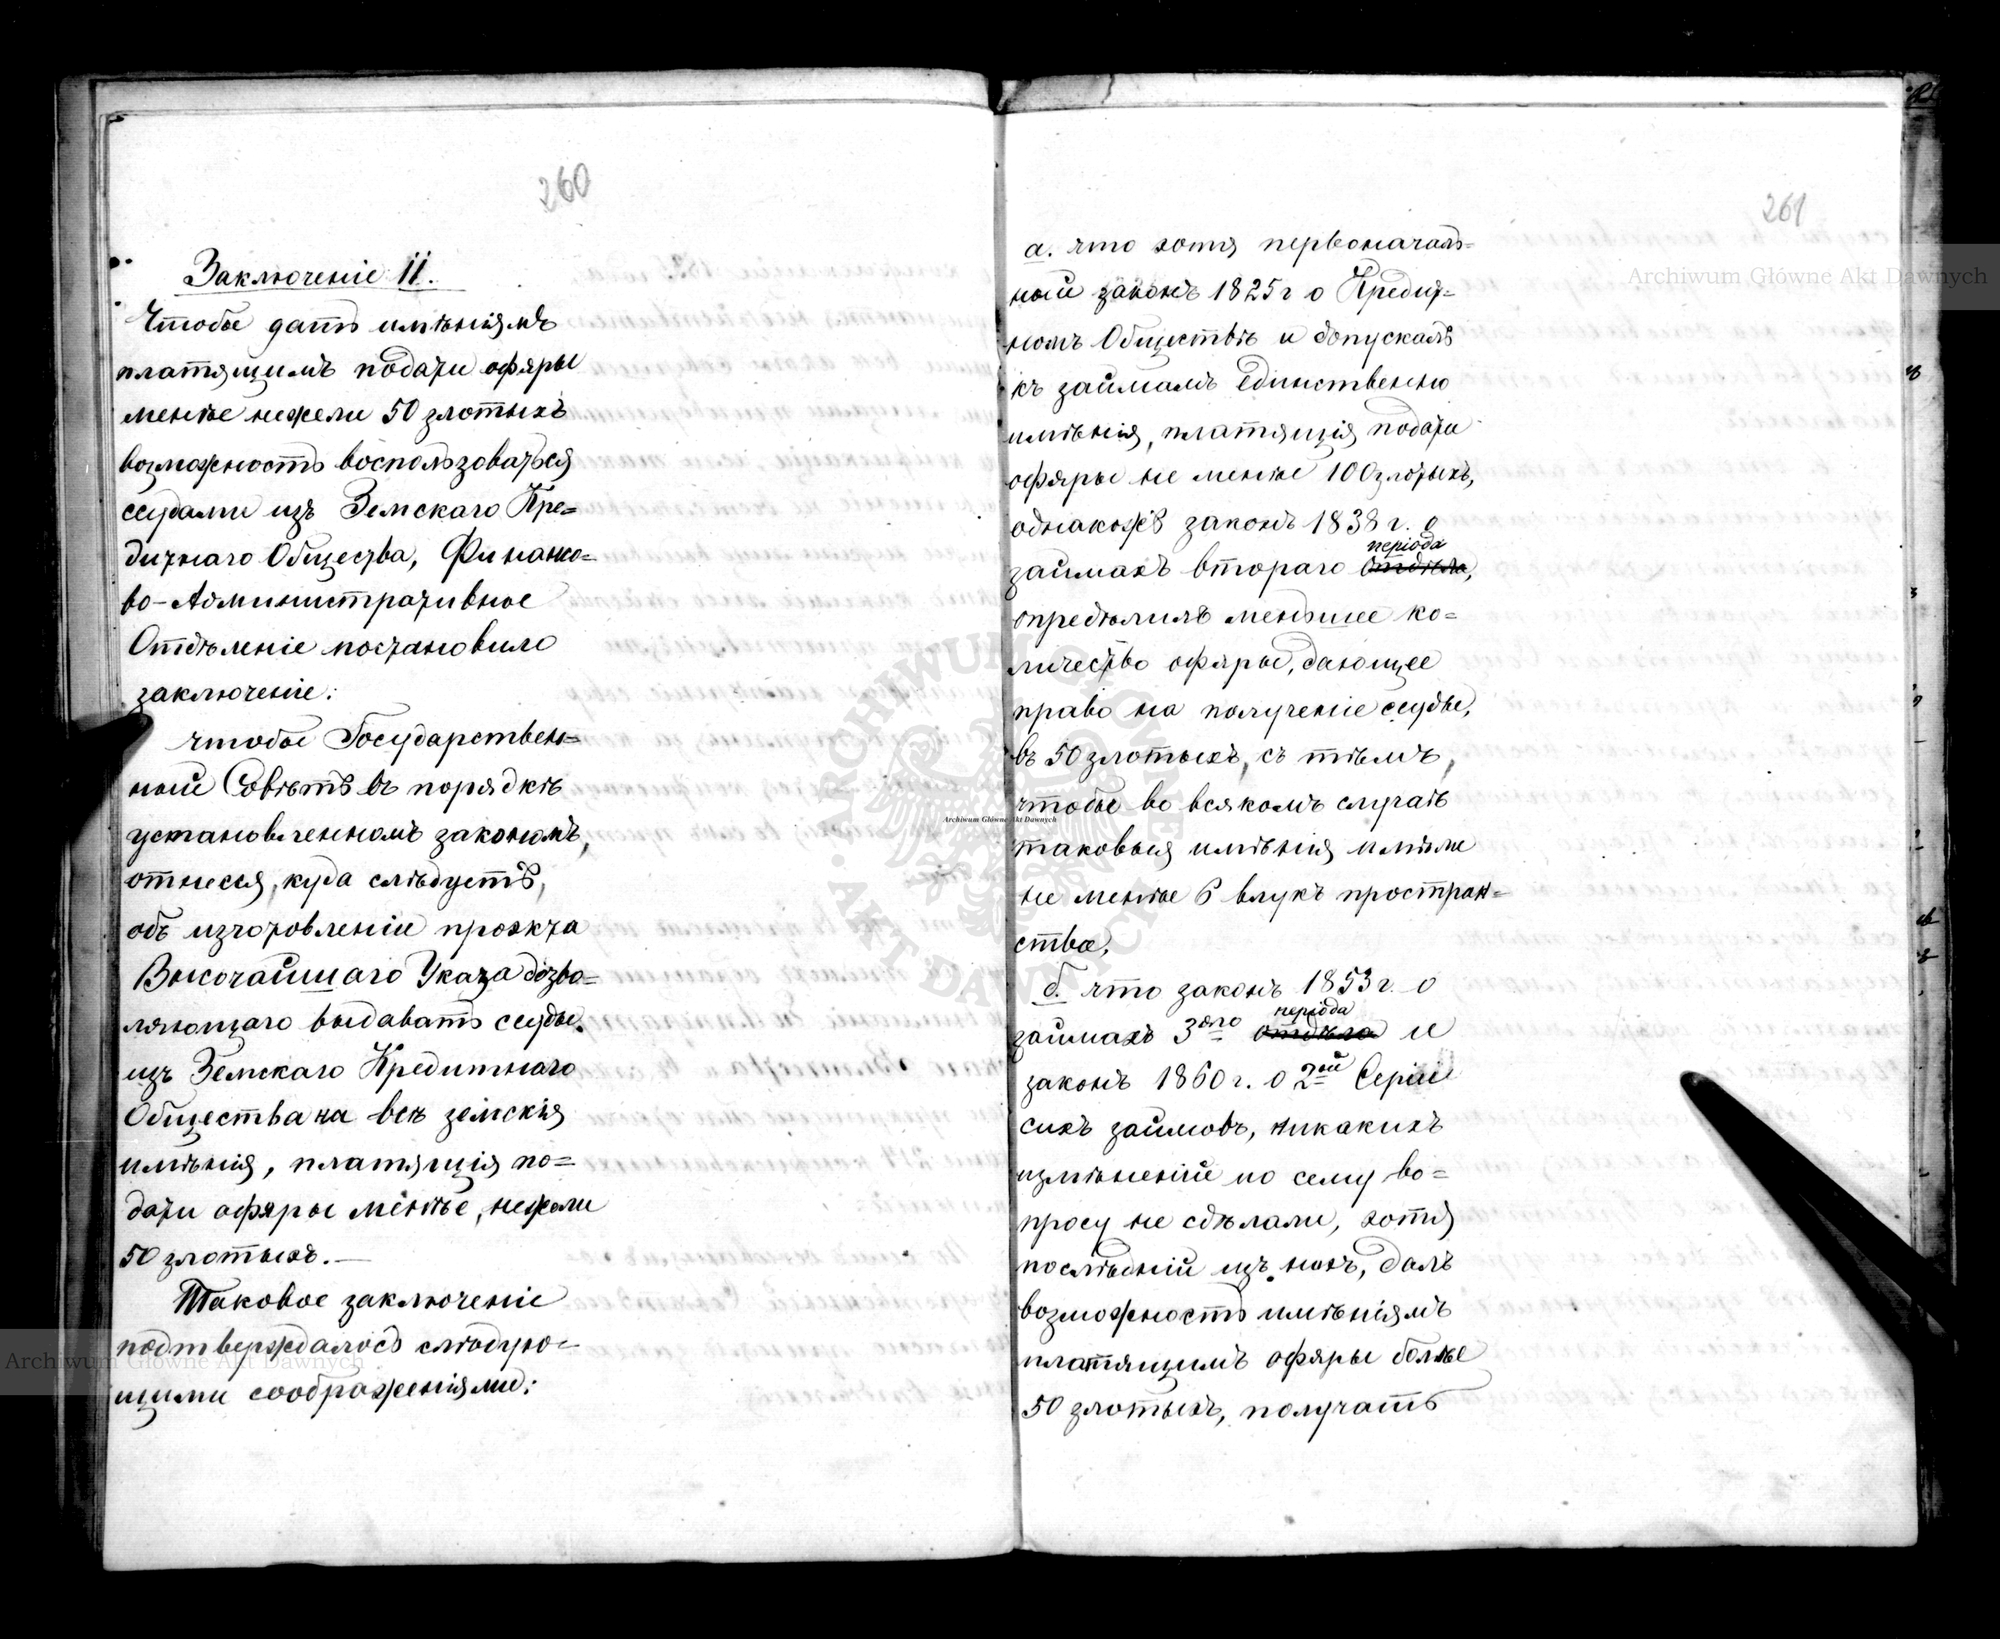 260
Заключеніе II.
Чтобы дать имѣніямъ
платящимъ подати офяры
менѣе нежели 50 злотыхъ
возможность воспользоваться
ссудами изъ Земскаго Кре=
дитнаго Общества, Финансо=
во-Административное
Отдѣленіе постановило
заключеніе:
чтобы Государствен=
ный Совѣтъ въ порядкѣ
установленномъ закономъ,
отнесся, куда слѣдуетъ,
объ изготовленіи проэкта
Высочайшаго Указа дозво=
ляющаго выдавать ссуды
изъ Земскаго Кредитнаго
Общества на всѣ земскія
имѣнія, платящія по=
дати офяры менѣе, нежели
50 злотыхъ.—
Таковое заключеніе
подтверждалось слѣдую=
щими соображеніями:
261
а. что хотя первоначаль=
ный законъ 1825 г о Кредит=
номъ Обществѣ и допускалъ
къ займамъ единственно
имѣнія, платящія подати
офяры не менѣе 100 злотыхъ,
однакожъ законъ 1838 г. о
періода
займахъ втораго отдѣла,
опредѣлилъ меньшее ко=
личество офяры, дающее
право на полученіе ссуды,
въ 50 злотыхъ, съ тѣмъ,
чтобы во всякомъ случаѣ
таковыя имѣнія имѣли
не менѣе 6 влукъ простран=
ства,
б. что законъ 1853 г. о
періода
займахъ 3го отдѣла и
законъ 1860 г. о 2ой Серіи
сихъ займовъ, никакихъ
измѣненій по сему во=
просу не сдѣлали, хотя
послѣдній изъ нихъ, далъ
возможность имѣніямъ
платящимъ офяры болѣе
50 злотыхъ, получать
Archiwum Główne Akt Dawnych
Archiwum Główne Akt Dawnych
Archiwum Główne Akt Dawnych
ARCHIWUM GŁÓWNE AKT DAWNYCH